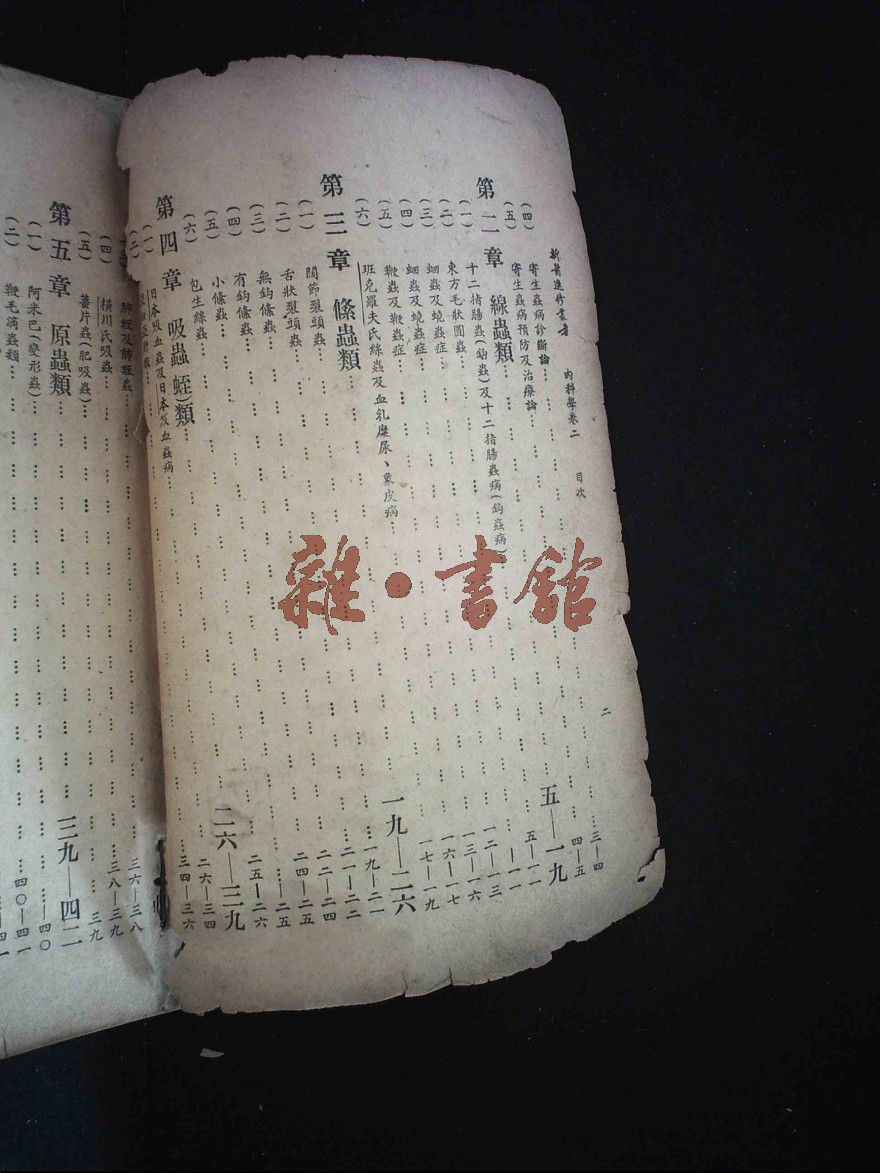 新醫進修叢書 內科學卷二 目次 二
(四) 寄生蟲病診斷論 三—四
(五) 寄生蟲病預防及治療論 四—五
第二章 線蟲類 五—一九
(一) 十二指腸蟲(鈎蟲)及十二指腸蟲病(鈎蟲病) 五—一一
(二) 東方毛狀圓蟲 一一
(三) 蛔蟲及蟯蟲症 一二—一三
(四) 蛔蟲及蟯蟲症 一三—一六
(五) 鞭蟲及鞭蟲症 一六—一七
(六) 班克羅夫氏絲蟲及血乳糜尿、象皮病 一七—一九
第三章 絛蟲類 一九—二六
(一) 關節裂頭蟲 一九—二一
(二) 舌狀裂頭蟲 二一—二二
(三) 無鈎絛蟲 二二—二四
(四) 有鈎絛蟲 二四—二五
(五) 小絛蟲 二五
(六) 包生絛蟲 二五—二六
第四章 吸蟲(蛭)類 二六—三九
(一) 日本吸血蟲及日本吸血蟲病 二六—三四
(二) 三四—三六
肺蛭及肺蛭蟲 三六—三八
(四) 橫川氏吸蟲 三八—三九
(五) 薑片蟲(肥吸蟲) 三九
第五章 原蟲類 三九—四二
(一) 阿米巴(變形蟲) 四〇
(二) 鞭毛滴蟲類 四〇—四一
雜·書館